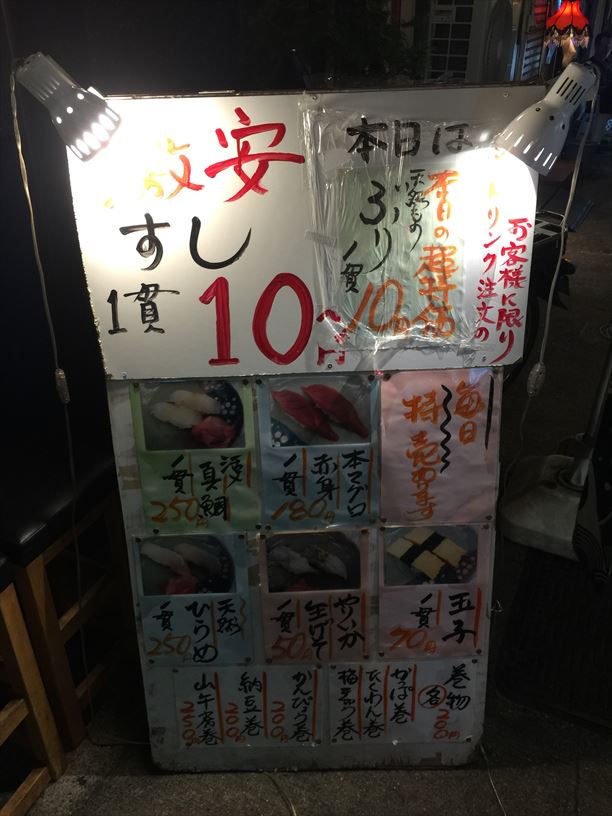 激安
すし
1貫
10円〜
本日は
本日の超特価
天然もの
ぶり
一貫
10円
ドリンク注文の
お客様に限り
活〆
真鯛
一貫
250円
本マグロ
赤身
一貫
180円
毎日
特売寿司
天然
ひらめ
一貫
250円
やりいか
生げそ
一貫
50円
玉子
一貫
70円
巻物
各200円
かっぱ巻
たくわん巻
梅シソ巻
かんぴょう巻
200円
納豆巻
200円
山午房巻
250円